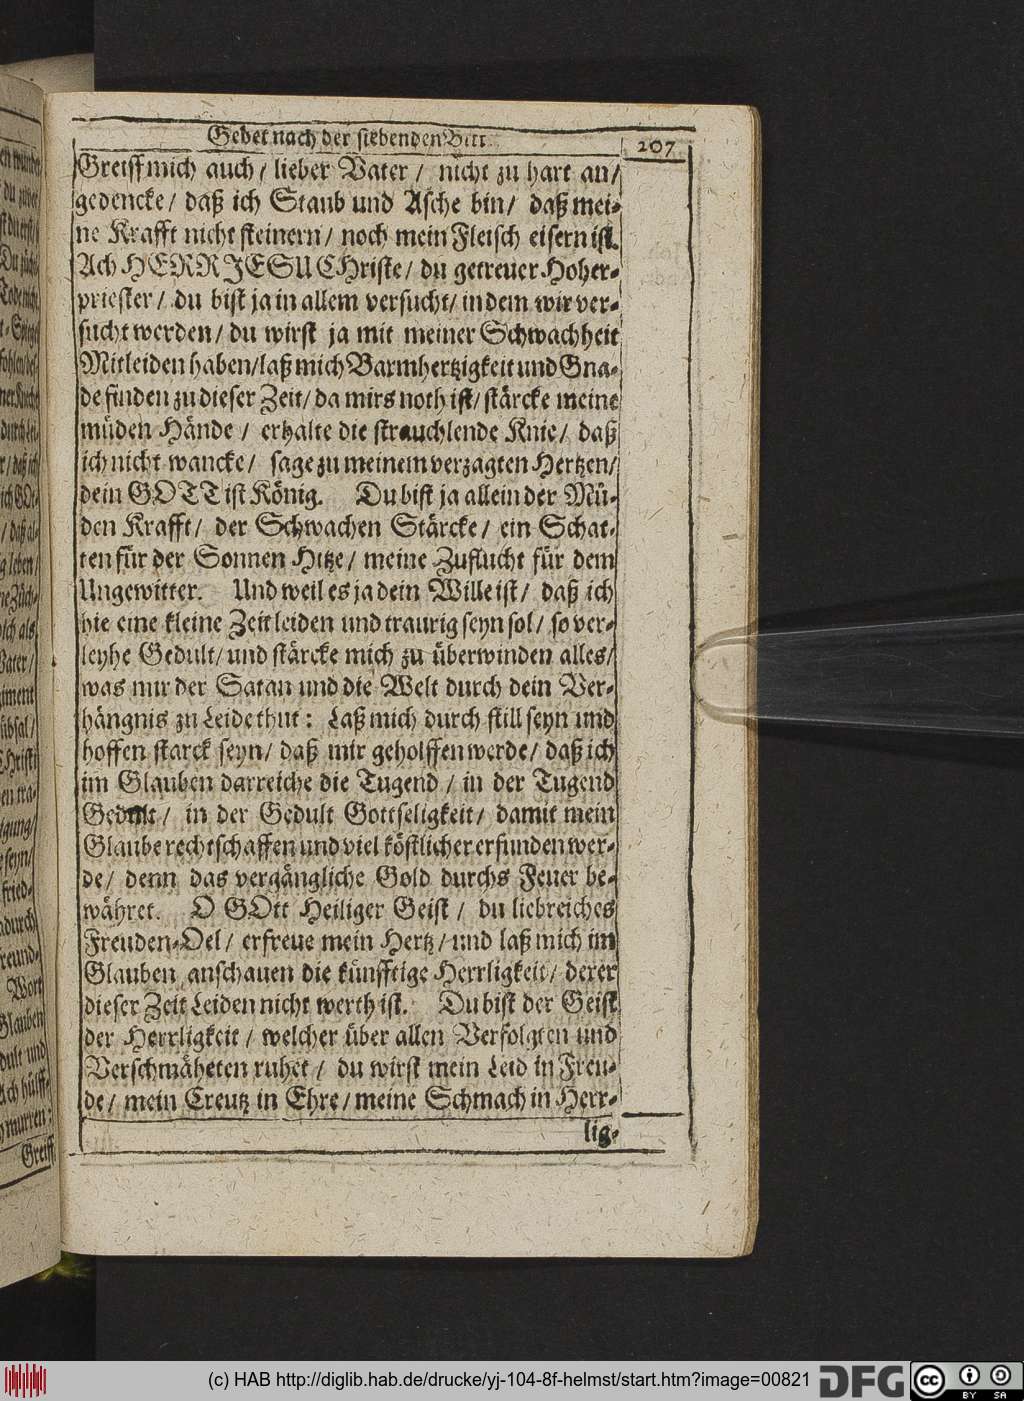 Gebet nach der siebenden Bitt. 207
Greiff mich auch / lieber Vater / nicht zu hart an /
gedencke / daß ich Staub und Asche bin / daß mei-
ne Krafft nicht steinern / noch mein Fleisch eisern ist.
Ach HERR JESU CHriste / du getreuer Hoher-
priester / du bist ja in allem versucht / indem wir ver-
sucht werden / du wirst ja mit meiner Schwachheit
Mitleiden haben / laß mich Barmhertzigkeit und Gna-
de finden zu dieser Zeit / da mirs noth ist / stärcke meine
müden Hände / erhalte die strauchlende Knie / daß
ich nicht wancke / sage zu meinem verzagten Hertzen /
dein GOTT ist König. Du bist ja allein der Mü-
den Krafft / der Schwachen Stärcke / ein Schat-
ten für der Sonnen Hitze / meine Zuflucht für dem
Ungewitter. Und weil es ja dein Wille ist / daß ich
hie eine kleine Zeit leiden und traurig seyn sol / so ver-
leyhe Gedult / und stärcke mich zu überwinden alles /
was mir der Satan und die Welt durch dein Ver-
hängnis zu Leide thut : Laß mich durch still seyn und
hoffen starck seyn / daß mir geholffen werde / daß ich
im Glauben darreiche die Tugend / in der Tugend
Gedult / in der Gedult Gottseligkeit / damit mein
Glaube rechtschaffen und viel köstlicher erfunden wer-
de / denn das vergängliche Gold durchs Feuer be-
währet. O GOtt Heiliger Geist / du liebreiches
Freuden-Oel / erfreue mein Hertz / und laß mich im
Glauben anschauen die künfftige Herrligkeit / derer
dieser Zeit Leiden nicht werth ist. Du bist der Geist
der Herrligkeit / welcher über allen Verfolgten und
Verschmäheten ruhet / du wirst mein Leid in Freu-
de / mein Creutz in Ehre / meine Schmach in Herr-
lig-
Greiff
(c) HAB http://diglib.hab.de/drucke/yj-104-8f-helmst/start.htm?image=00821
DFG
cc BY SA